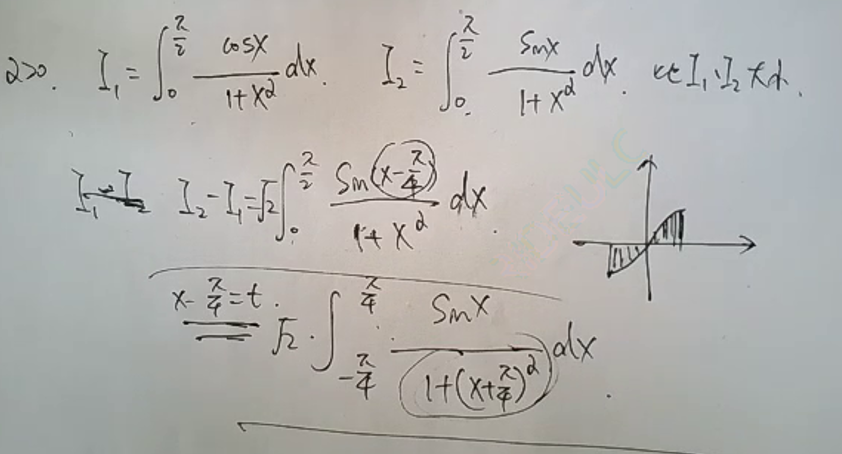 α>0. I₁ = ∫₀^{π/2} cosx/(1+x^α) dx. I₂ = ∫₀^{π/2} sinx/(1+x^α) dx. 比 I₁、I₂ 大小.
I₂-I₁=√2∫₀^{π/2} sin(x-π/4)/(1+x^α) dx.
x-π/4=t. √2·∫_{-π/4}^{π/4} sinx/(1+(x+π/4)^α) dx.